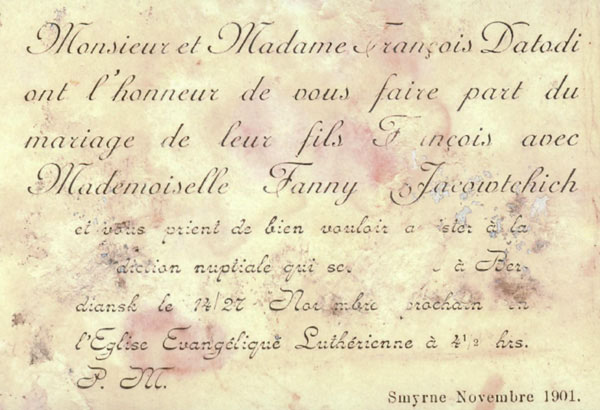 Monsieur et Madame François Datodi
ont l'honneur de vous faire part du
mariage de leur fils F nçois avec
Mademoiselle Fanny Jacowtchich
et vous prient de bien vouloir a ister à la
diction nuptiale qui se à Ber-
diansk le 14/27 Novembre prochain en
l'Eglise Evangélique Luthérienne à 4 1/2 hrs.
P. M.
Smyrne Novembre 1901.